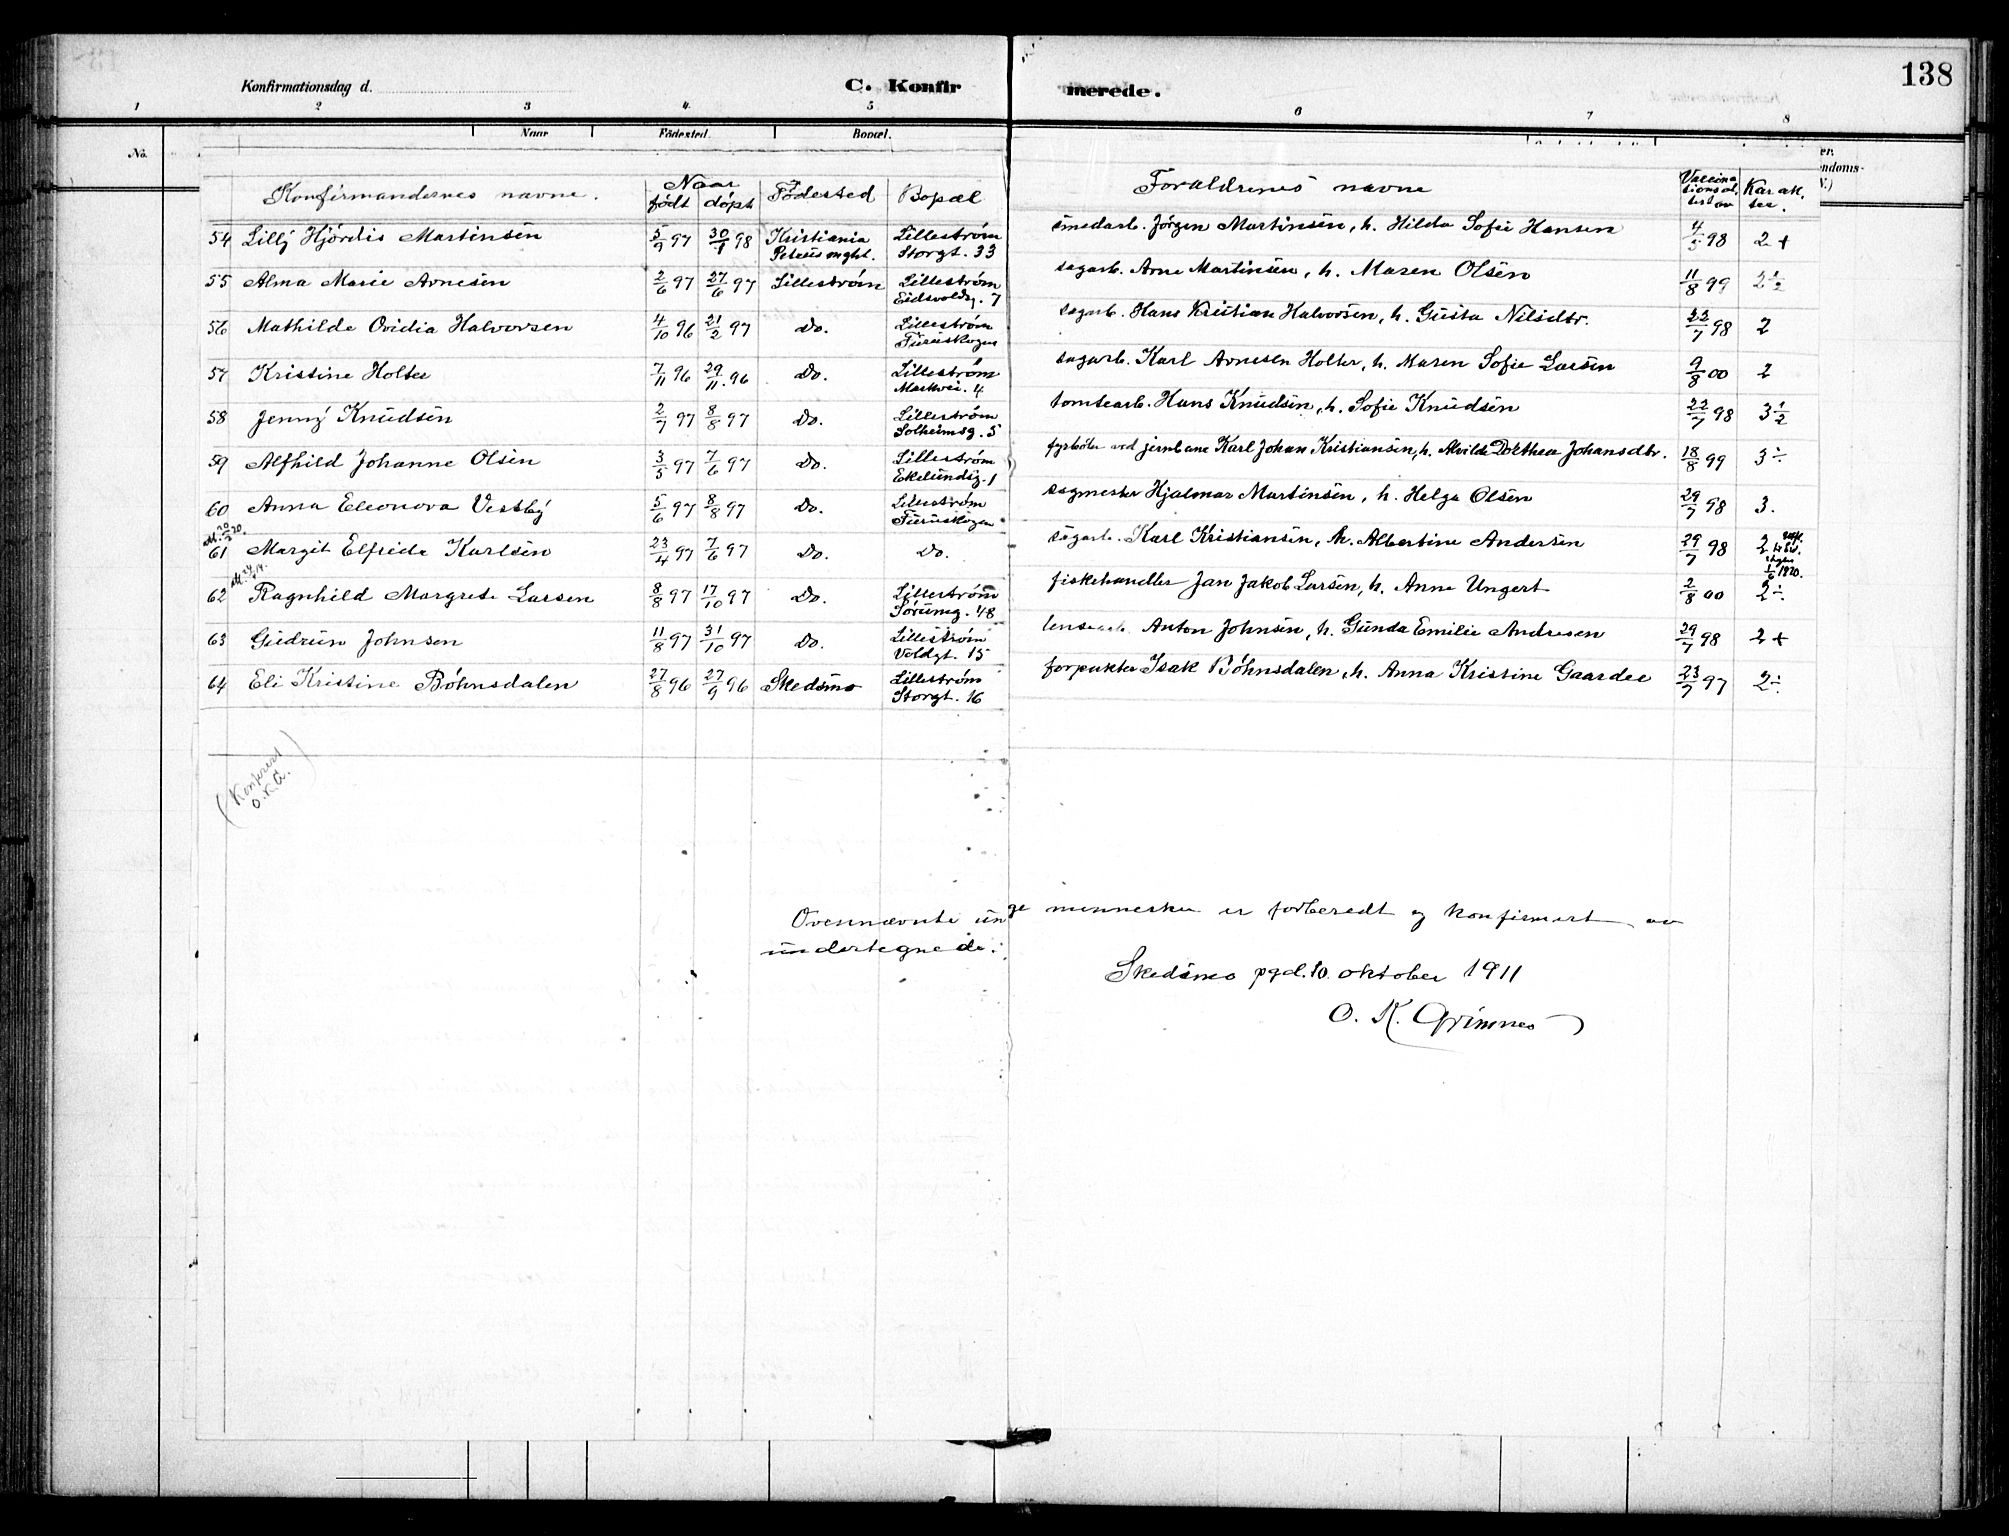 138
Konfirmationsdag d. C. Konfirmerede.
1 2 3 4 5 6 7 8
No. Naar Födested. Bopæl.
Konfirmandernes navne. Naar født døpt Fødested Bopæl Forældrenes navne Karakter.
54 Lillÿ Hjördis Martinsen 5/7 97 30/1 98 Kristiania Lillestrøm smedarb. Jørgen Martinsen, h. Hilda Sofie Hansen 4/5 98 2+
Storgt. 33
55 Alma Marie Arnesen 2/6 97 27/6 97 Lillestrøm Lillestrøm sagarb. Arne Martinsen, h. Maren Olsen 11/8 99 2 ½
Eidsvoldsg. 7
56 Mathilde Ovidia Halvorsen 4/10 96 21/2 97 Do. Lillestrøm sagarb. Hans Kristian Halvorsen, h. Gusta Nilsdtr. 22/7 98 2
Furuskogen
57 Kristine Holter 7/11 96 29/11. 96 Do. Lillestrøm sagarb. Karl Arnesen Holter, h. Maren Sofie Larsen 9/8 00 2
Markvei. 4
58 Jennÿ Knudsen 2/7 97 8/8 97 Do. Lillestrøm tomtearb. Hans Knudsen, h. Sofie Knudsen 22/7 98 3 ½
Solheimsg. 5
59 Alfhild Johanne Olsen 3/5 97 7/6 97 Do. Lillestrøm fyrbøter ved jernbane Karl Johan Kristiansen, h. Alvilde Dorthea Johansdtr. 18/8 99 3÷
Ekelundsg. 1
60 Anna Eleonora Vestbÿ 5/6 97 8/8 97 Do. Lillestrøm sagmester Hjalmar Martinsen, h. Helga Olsen 29/7 98 3.
Furuskogen
61 Margit Elfrida Karlsen 23/4 97 7/6 97 Do. Do. sagarb. Karl Kristiansen, h. Albertine Andersen 29/7 98 2
1/6 1920.
62 Ragnhild Margrete Larsen 8/8 97 17/10 97 Do. Lillestrøm fiskehandler Jan Jakob Larsen, h. Anne Ungert 2/8 00 2÷
Sørumg. 48
63 Gudrun Johnsen 11/8 97 31/10 97 Do. Lillestrøm Anton Johnsen, h. Gunda Emilie Andresen 29/7 98 2+
Voldgt. 15
64 Eli Kristine Bøhnsdalen 27/8 96 27/9 96 Skedsmo Lillestrøm forpakter Isak Bøhnsdalen, h. Anna Kristine Gaarder 23/7 97 2÷
Storgt. 16
(Konferert
O.K.G.)
Ovennævnte unge mennesker er forberedt og konfirmert av
undertegnede:
Skedsmo pgd. 10. oktober 1911
O. K. Grimnes